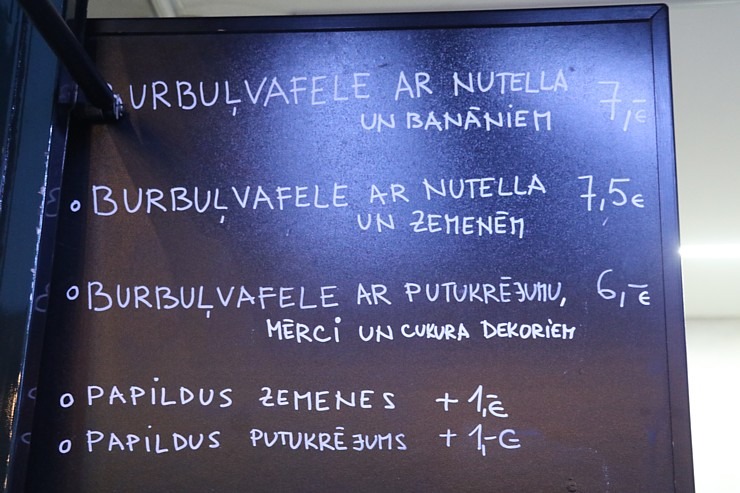 BURBUĻVAFELE AR NUTELLA 7,-€
UN BANĀNIEM
BURBUĻVAFELE AR NUTELLA 7,5€
UN ZEMENĒM
BURBUĻVAFELE AR PUTUKRĒJUMU, 6,-€
MĒRCI UN CUKURA DEKORIEM
PAPILDUS ZEMENES +1,-€
PAPILDUS PUTUKRĒJUMS +1,-€